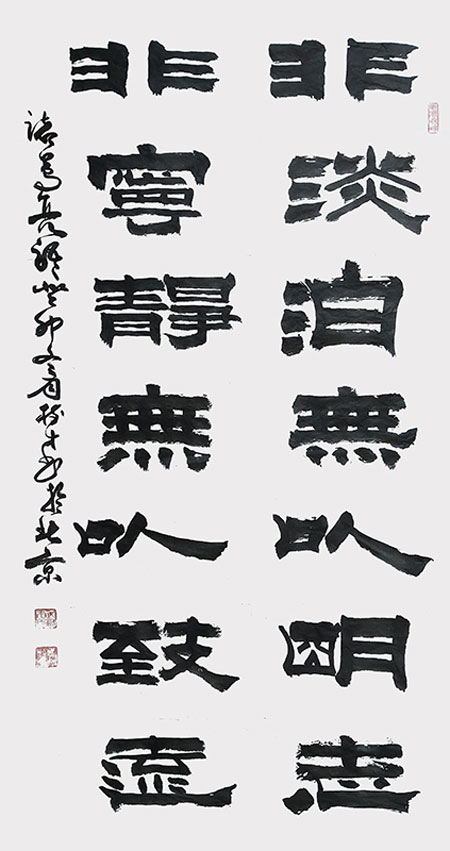 非淡泊無以明志
非寧靜無以致遠
諸葛亮 癸卯 書於北京